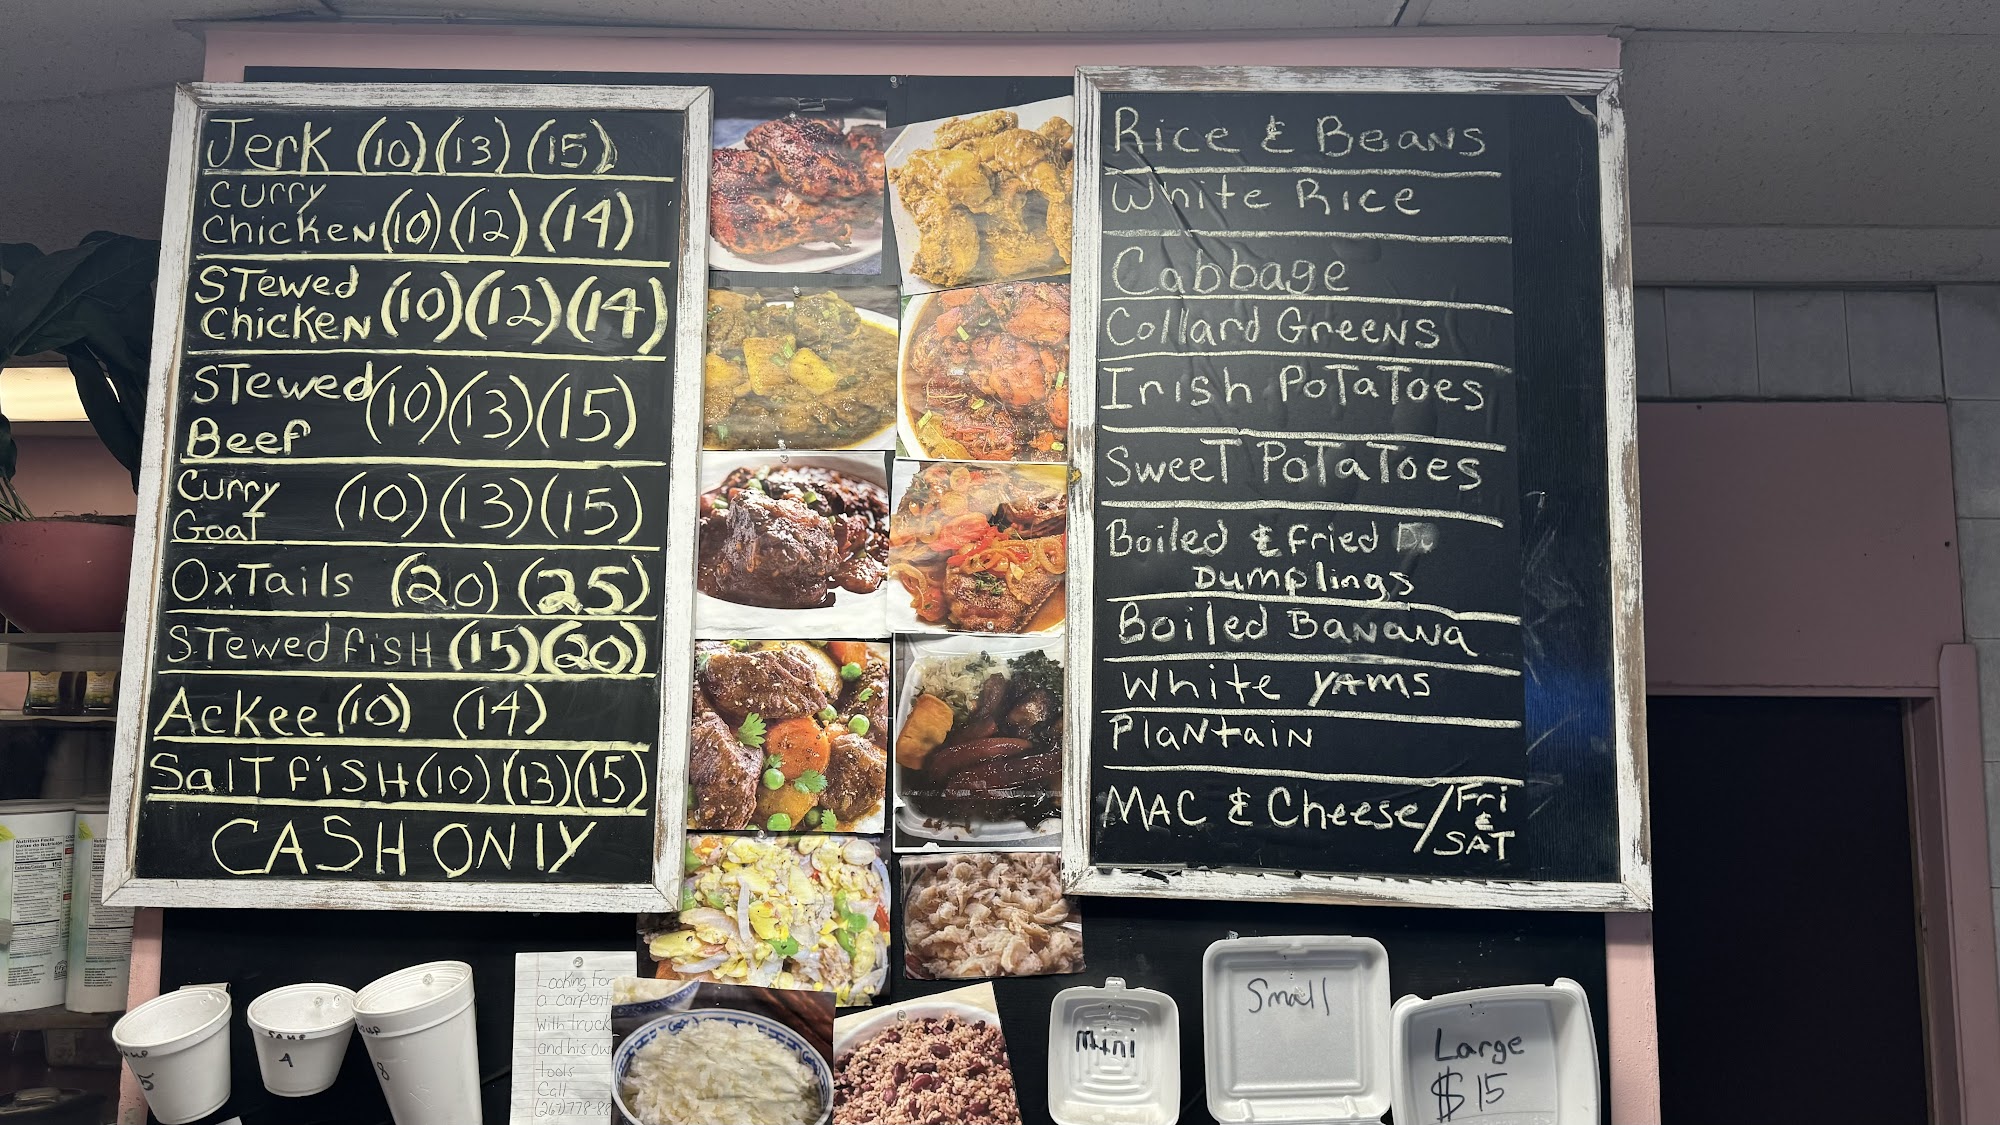 Jerk (10) (13) (15)
Curry
Chicken (10) (12) (14)
Stewed
Chicken (10) (12) (14)
Stewed (10) (13) (15)
Beef
Curry
Goat (10) (13) (15)
OxTails (20) (25)
Stewed fish (15) (20)
Ackee (10) (14)
Salt fish (10) (13) (15)
CASH ONLY
Rice & Beans
White Rice
Cabbage
Collard Greens
Irish Potatoes
Sweet Potatoes
Boiled & fried Du
Dumplings
Boiled Banana
White Yams
Plantain
MAC & Cheese/Fri
&
SAT
Looking For
a carpent
with truck
and his ow
tools
Call
(267)778-88
5
4
8
Mini
Small
Large
$15
Nutrition Facts